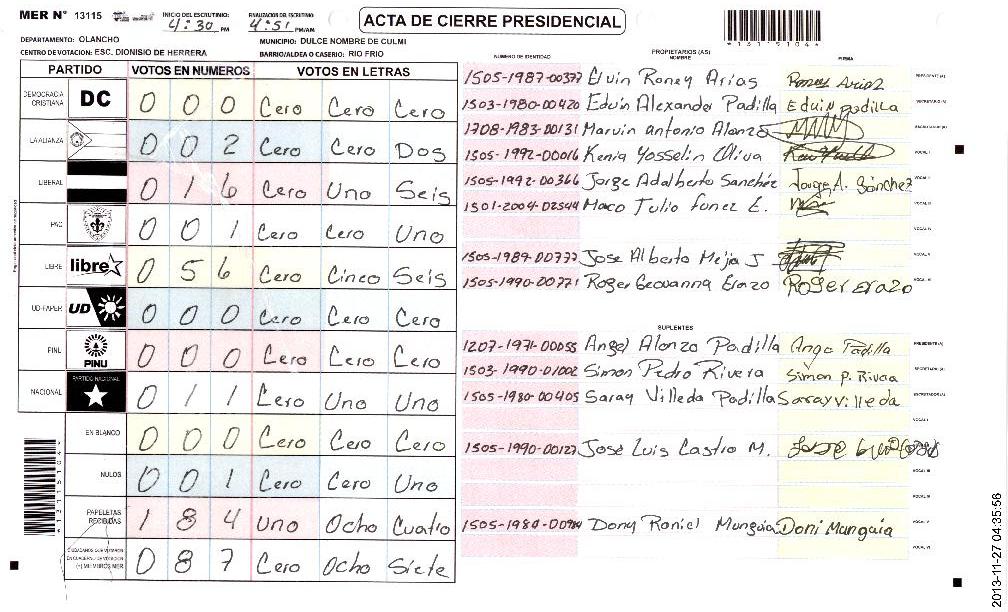 MER N° 13115
INICIO DEL ESCRUTINIO: 4:30 PM
FINALIZACION DEL ESCRUTINIO: 4:51 PM/AM
ACTA DE CIERRE PRESIDENCIAL
*131151044*
DEPARTAMENTO: OLANCHO
MUNICIPIO: DULCE NOMBRE DE CULMI
CENTRO DE VOTACION: ESC. DIONISIO DE HERRERA
BARRIO/ALDEA O CASERIO: RIO FRIO
PARTIDO VOTOS EN NUMEROS VOTOS EN LETRAS
DEMOCRACIA CRISTIANA DC 0 0 0 Cero Cero Cero
LA ALIANZA 0 0 2 Cero Cero Dos
LIBERAL 0 1 6 Cero Uno Seis
PAC 0 0 1 Cero Cero Uno
LIBRE libre 0 5 6 Cero Cinco Seis
UD-FAPER UD 0 0 0 Cero Cero Cero
PINU PINU 0 0 0 Cero Cero Cero
NACIONAL PARTIDO NACIONAL 0 1 1 Cero Uno Uno
EN BLANCO 0 0 0 Cero Cero Cero
NULOS 0 0 1 Cero Cero Uno
PAPELETAS RECIBIDAS 1 8 4 Uno Ocho Cuatro
CIUDADANOS QUE VOTARON EN CUADERNO DE VOTACION (+) MIEMBROS MER 0 8 7 Cero Ocho Siete
NUMERO DE IDENTIDAD PROPIETARIOS (AS) NOMBRE FIRMA
1505-1987-00377 Elvin Roney Arias Roney Arias PRESIDENTE(A)
1503-1980-00420 Eduin Alexander Padilla Eduin padilla SECRETARIO(A)
1708-1983-00131 Marvin antonio Alonzo ESCRUTADOR(A)
1505-1992-00016 Kenia Yosselin Oliva VOCAL I
1505-1992-00366 Jorge Adalberto Sanchéz Jorge A. Sánchez VOCAL II
1501-2004-02544 Marco Tulio funez E. VOCAL III
VOCAL IV
1505-1989-00777 Jose Alberto Mejia J VOCAL V
1505-1990-00771 Roger Geovanna Erazo Roger erazo VOCAL VI
SUPLENTES
1207-1971-00055 Angel Alonzo Padilla Ange Padilla PRESIDENTE(A)
1503-1990-01002 Simon Pedro Rivera Simon P. Rivera SECRETARIO(A)
1505-1980-00405 Saray Villeda Padilla Saray villeda ESCRUTADOR(A)
VOCAL I
1505-1990-00127 José Luis Castro M. VOCAL II
VOCAL III
VOCAL IV
1505-1980-00984 Dony Roniel Munguia Doni Manguia VOCAL V
VOCAL VI
2013-11-27 04:35:56